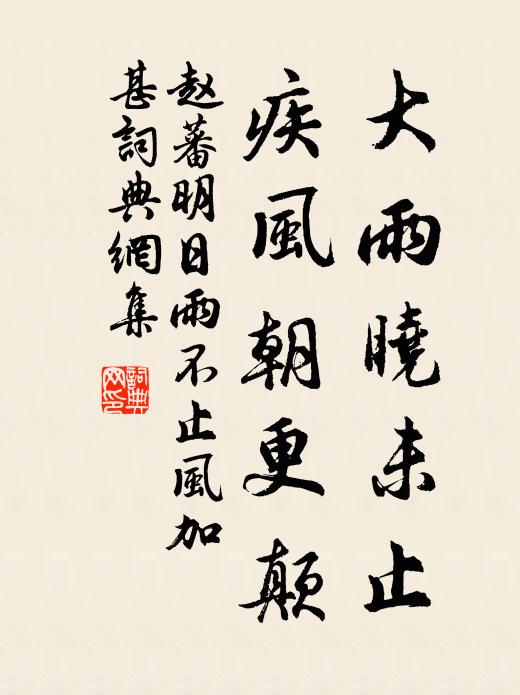 大雨曉未止
疾風朝更顛
赵蕃明日雨不止風加
甚詞典網集
詞典網印